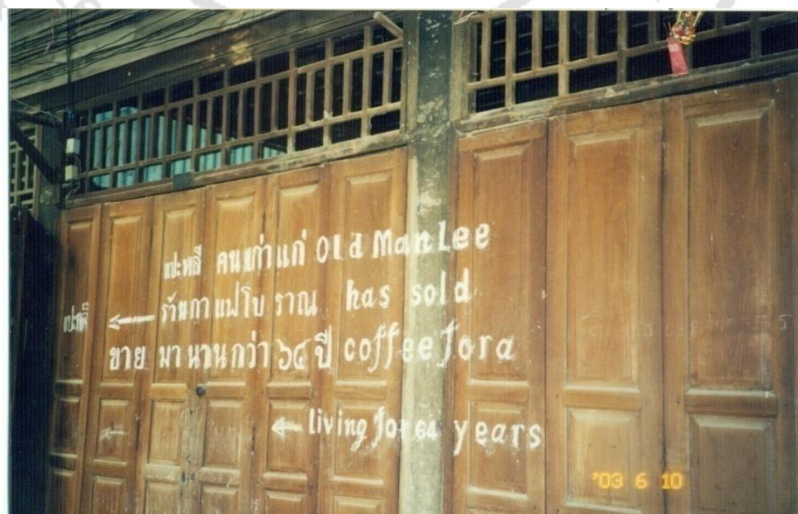 แปะหลี คนเก่าแก่ Old Man Lee
แปะหลี ← ร้านกาแฟโบราณ has sold
ขาย มานานกว่า ๖๔ ปี coffee for a
← living for 64 years
'03 6 10